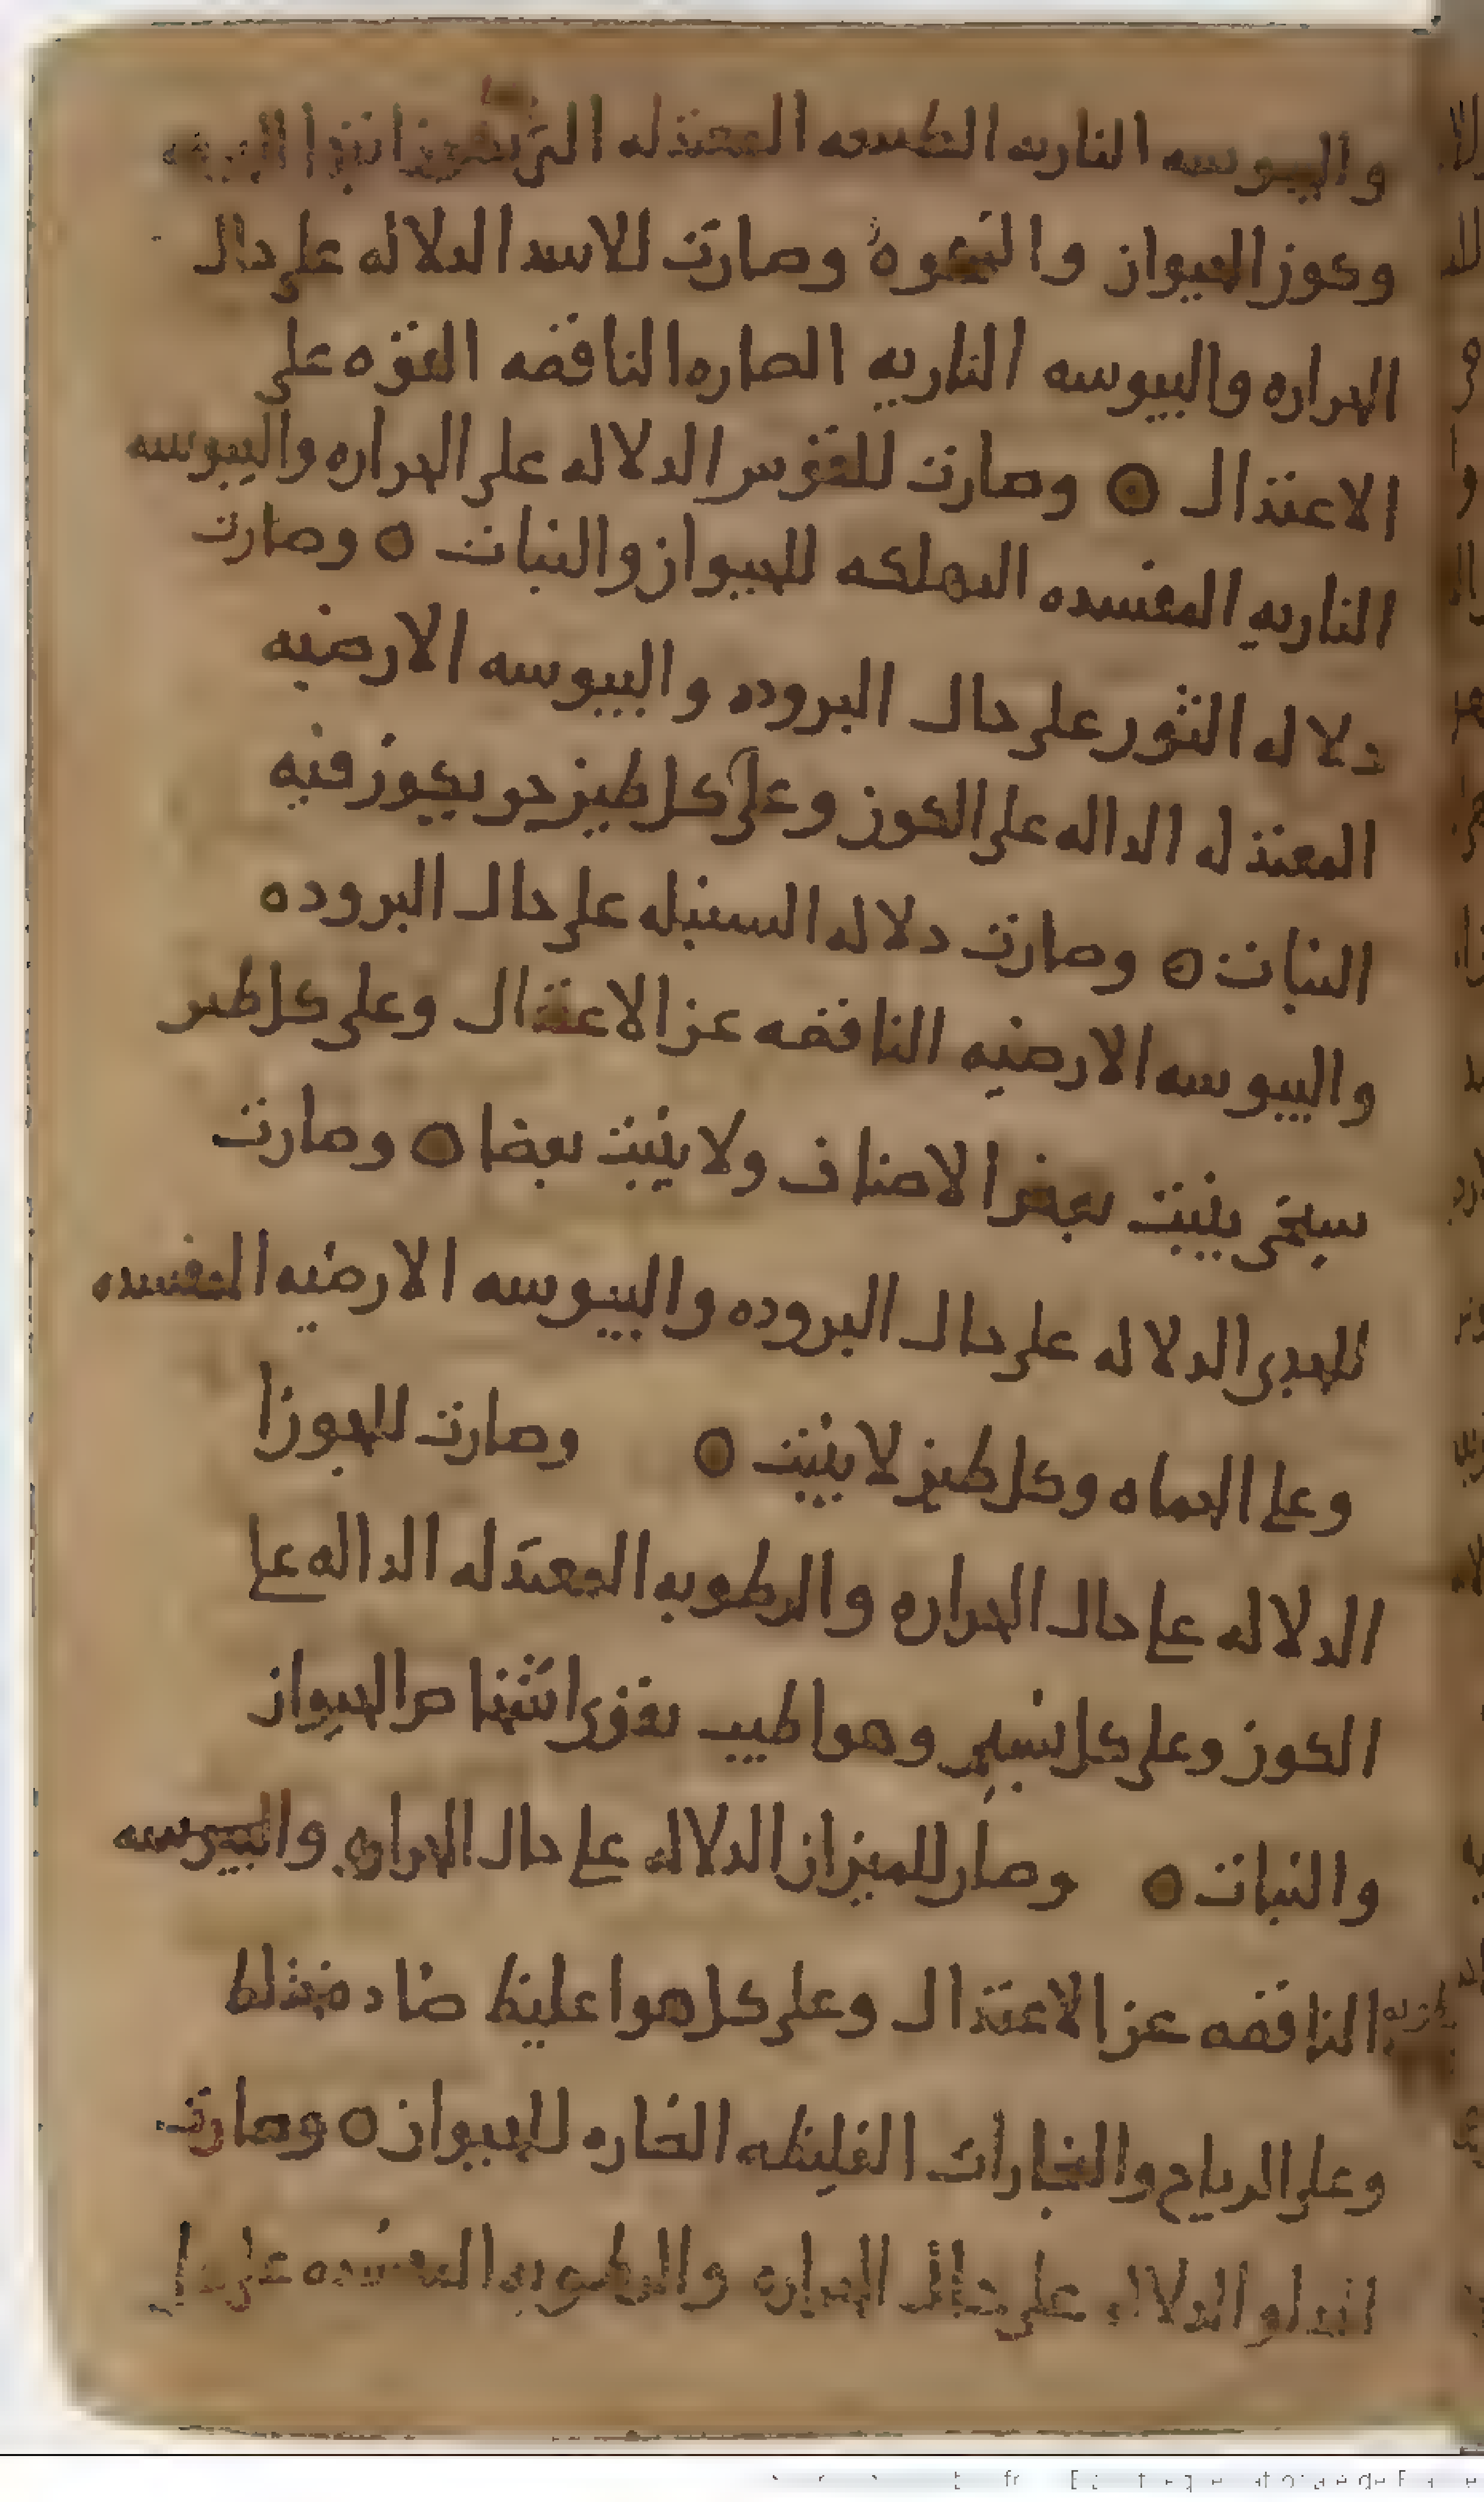 واليبوسه الناريه الطبيعيه المعتدله التى
وكون الحيوان والنموه وصارت للاسد الدلاله على حال
الحراره واليبوسه الناريه الضاره الناقصه القوه على
الاعتدال ٥ وصارت للقوس الدلاله على الحراره واليبوسه
الناريه المفسده المهلكه للحيوان والنبات ٥ وصارت
دلاله الثور على حال البروده واليبوسه الارضيه
المعتدله الداله على الكون وعلى كل طين حر يكون فيه
النبات ٥ وصارت دلاله السنبله على حال البروده
واليبوسه الارضيه الناقصه عن الاعتدال وعلى كل طين
ينبت بعض الاصناف ولا ينبت بعضا ٥ وصارت
للجدى الدلاله على حال البروده واليبوسه الارضيه المفسده
وعلى الحماه وكل طين لا ينبت ٥ وصارت للجوزا
الدلاله على حال الحراره والرطوبه المعتدله الداله على
الكون وعلى كل نسيم وهوا طيب يقوى الحيوان
والنبات ٥ وصار للميزان الدلاله على حال الحراره واليبوسه
الناقصه عن الاعتدال وعلى كل هوا غليظ ضار مختلط
وعلى الرياح والبخارات الغليظه الضاره للحيوان ٥ وصارت
الدلو الدلاله على حال الحراره والرطوبه المفسده على